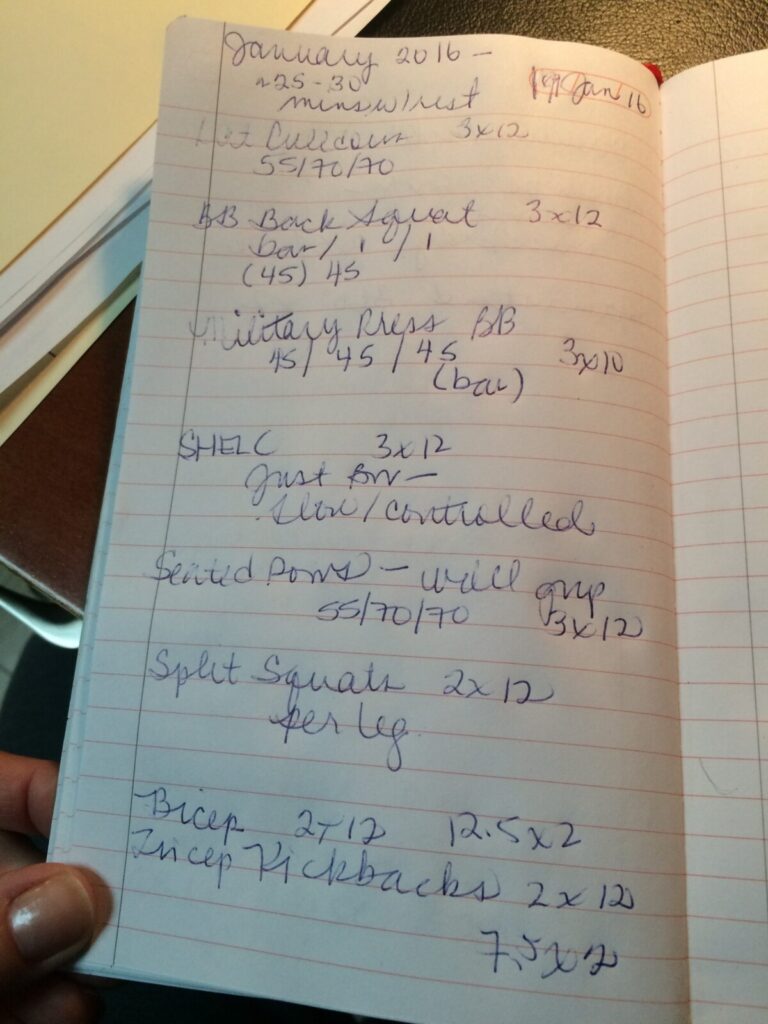 January 2016 -
~25-30
mins w/ rest
Jan 16
Lat Pulldown 3x12
55/70/70
BB Back Squat 3x12
bar / 1 / 1
(45) 45
Military Press BB
45/ 45 / 45 3x10
(bar)
SHELC 3x12
Just BW -
slow/controlled
Seated Rows - wide grip
55/70/70 3x12
Split Squats 2x12
per leg.
Bicep 2x12 12.5x2
Tricep Kickbacks 2x12
7.5x2